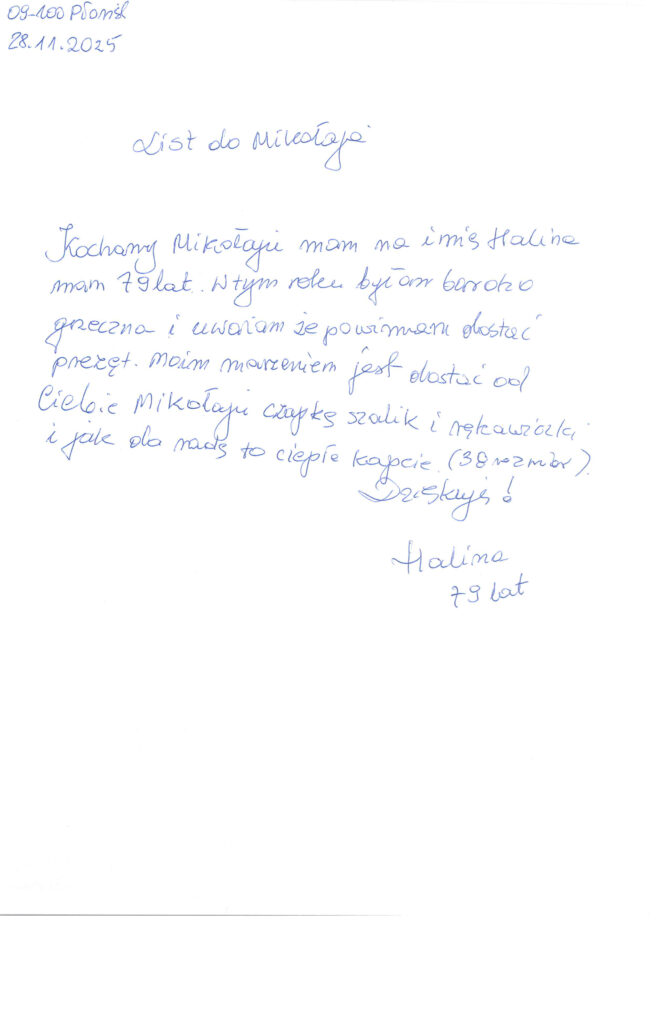 09-100 Płońsk
28.11.2025
List do Mikołaja
Kochany Mikołaju mam na imię Halina
mam 79 lat. W tym roku byłam bardzo
grzeczna i uważam że powinnam dostać
prezęt. Moim marzeniem jest dostać od
Ciebie Mikołaju czapkę szalik i rękawiczki
i jak da radę to ciepłe kapcie. (38 rozmiar).
Dziękuję!
Halina
79 lat